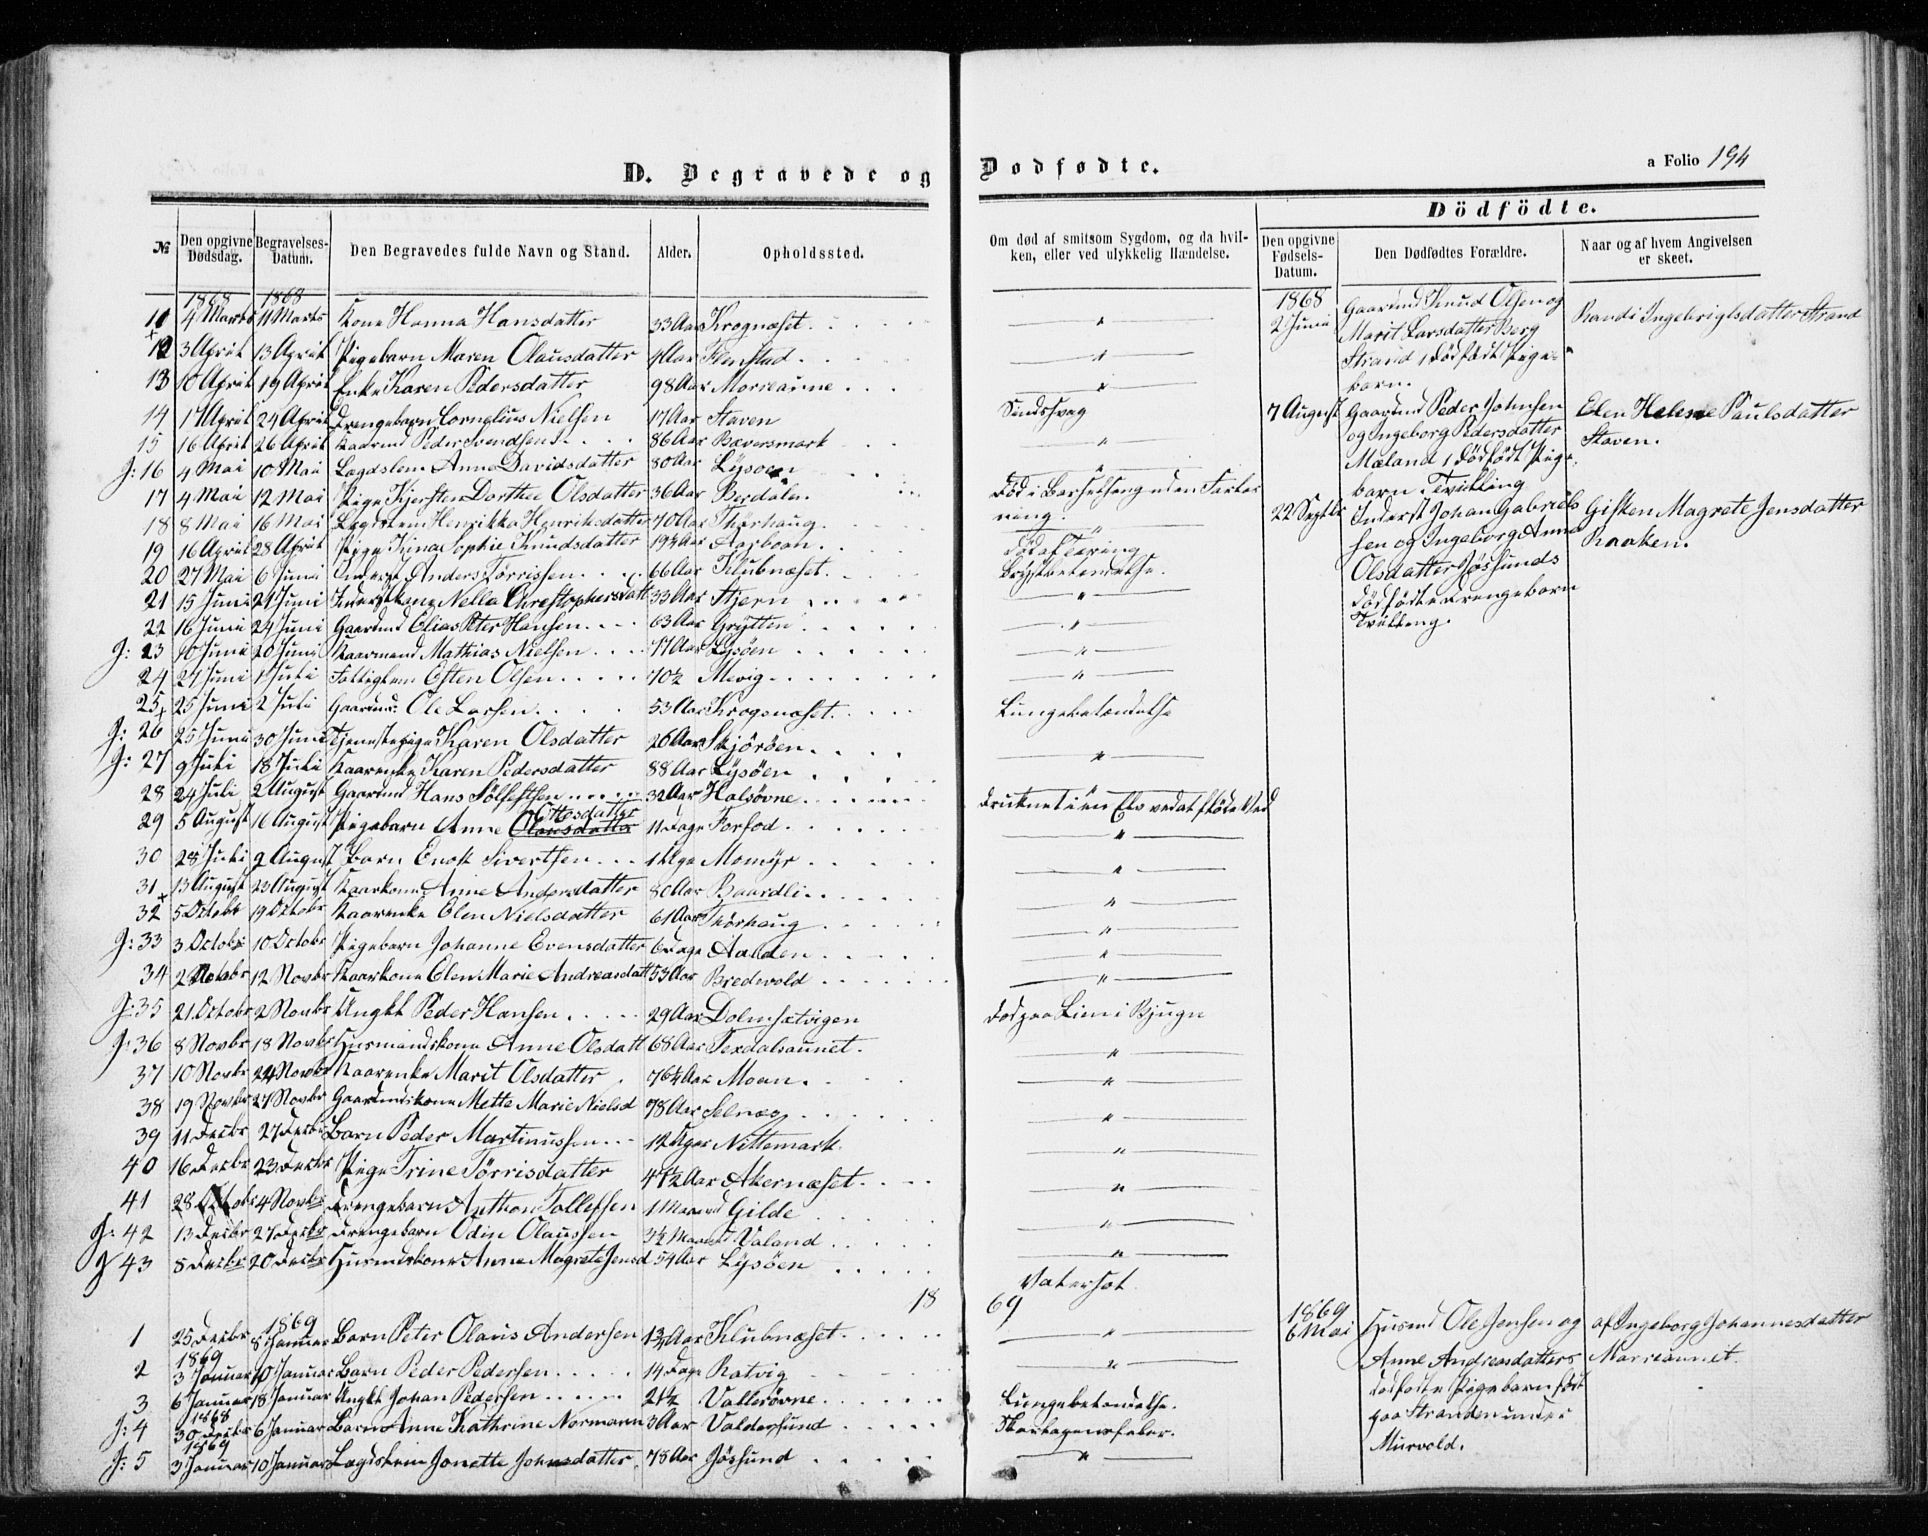 D. Begravede og Dødfødte.
a Folio 194
Dödfödte.
№
Den opgivne Dødsdag.
Begravelses-Datum.
Den Begravedes fulde Navn og Stand.
Alder.
Opholdssted.
Om død af smitsom Sygdom, og da hvilken, eller ved ulykkelig Hændelse.
Den opgivne Fødsels-Datum.
Den Dødfødtes Forældre.
Naar og af hvem Angivelsen er skeet.
1868 1868
11 4 Marts 11 Marts Kone Hanna Hansdatter 33 Aar Krognæset "
12 3 April 13 April Pigebarn Maren Olausdatter 4 Aar Flenstad "
13 10 April 19 April Enke Karen Pedersdatter 98 Aar Morreaune "
14 17 April 24 April Drengebarn Cornelius Nielsen 17 Aar Staven Sindssvag
15 16 April 26 April Kaarmd Peder Svendsen 86 Aar Bæversmark "
J: 16 4 Mai 10 Mai Lægdslem Anne Davidsdatter 80 Aar Lysøen "
17 4 Mai 12 Mai Pige Kjersten Dorthee Olsdatter 36 Aar Berdalen Død i Barselseng uden
18 8 Mai 16 Mai Lægdslem Henrikka Henriksdatter 70 Aar Thørhaug "
19 16 April 28 April Pige Kina Sophie Knudsdatter 19¾ Aar Aarboen Død af Tæring
20 27 Mai 6 Juni Inderst Anders Tørrissen 66 Aar Klubnæset Brystbetændelse.
21 15 Juni 21 Juni Inderstkone Nella Christophersdatt 33 Aar Stjern "
22 16 Juni 24 Juni Gaardmd Elias Peter Hansen 63 Aar Grytten "
J: 23 10 Juni 20 Juni Kaarmand Mathias Nielsen 77 Aar Lysøen "
24 27 Juni 1 Juli Fattiglem Esten Olsen 70½ Mevig "
25 25 Juni 2 Juli Gaardmd. Ole Larsen 53 Aar Krogsnæset Lungebetændelse
J: 26 25 Juni 30 Juni Tjenestepige Karen Olsdatter 26 Aar Skjörøen
J: 27 9 Juli 18 Juli Kaarenke Karen Pedersdatter 88 Aar Lysøen "
28 24 Juli 2 August Gaardmd Hans Sølfestsen 32 Aar Halsøvne Druknet i en Elv ved at fløde Ved
Ottesdatter
29 5 August 16 August Pigebarn Anne Olausdatter 11 Dage Forfod "
30 28 Juli 2 August Barn Enok Sivertsen 1 Uge Momyr "
31 13 August 23 August Kaarkone Anne Andersdatter 80 Aar Baardli "
32 5 Octobr 19 Octobr Kaarenke Elen Nielsdatter 61 Aar Thørhaug "
J: 33 3 Octobr 10 Octobr Pigebarn Johanne Evensdatter 6 Dage Aalden "
34 2 Novbr 12 Novbr Kaarkone Elen Marie Andreasdatt 53 Aar Bredvold "
J: 35 21 Octobr 2 Novbr Ungkl Peder Hansen 29 Aar Dolmsætvigen Død paa Liem i Bjugn
J: 36 8 Novbr 18 Novbr Husmandskone Anne Olsdatt 68 Aar Texdalsaunet "
37 10 Novbr 24 Novbr Kaarenke Marit Olsdatter 76¼ Aar Moan "
38 19 Novbr 27 Novbr Gaardmdskone Mette Marie Nielsd 78 Aar Selnæs "
39 11 Decbr 27 Decbr Barn Peder Martinussen 12 Uger Nittemark "
40 16 Decbr 23 Decbr Pige Trine Tørrisdatter 47½ Aar Akernæset "
41 28 Octobr 4 Novbr Drengebarn Anthon Tollefsen 1 Maaned Gilde "
J: 42 13 Decbr 27 Decbr Drengebarn Odin Olaussen 3½ Maaned Valand "
J 43 8 Decbr 20 Decbr Husmdskone Anne Magrete Jensd 54 Aar Lysøen Vatersot.
18 69
1869
1 25 Decbr 8 Januar Barn Peter Olaus Andersen 1¾ Aar Klubnæset "
1869
2 3 Januar 10 Januar Barn Peder Pedersen 14 Dage Ratvig "
3 6 Januar 18 Januar Ungkl Johan Pedersen 21½ Vallersøvne Lungebetændelse.
1868
J: 4 30 Decbr 6 Januar Barn Anne Kathrine Normann 3 Aar Valdersund Skarlagensfeber.
1869
J: 5 3 Januar 10 Januar Lægdslem Jonette Johnsdatter 78 Aar Jøssund "
1868
2 Juni
Gaardmd Knud Olsen og
Marit Larsdatter Berg
Strand, dødfødt Pige-
barn.
Randi Ingebrigtsdatter Strand
7 August
Gaardmd Peder Johnsen
og Ingeborg Pedersdatter
Mæland, dødfødt Pige-
barn. Tvilling
Elen Helene Paulsdatter
Staven.
22 Septbr
Inderst Johan Gabriel-
sen og Ingeborg Anna
Olsdatter Jøssunds
dødfødte Drengebarn
Tvilling.
Gifken Magrete Jensdatter
Raaken.
1869
6 Mai
Husmd Ole Jensen og
Anne Andreasdatters
dødfødte Pigebarn født
paa Stranden under
Murvold.
af Ingeborg Johannesdatter
Morreaunet.